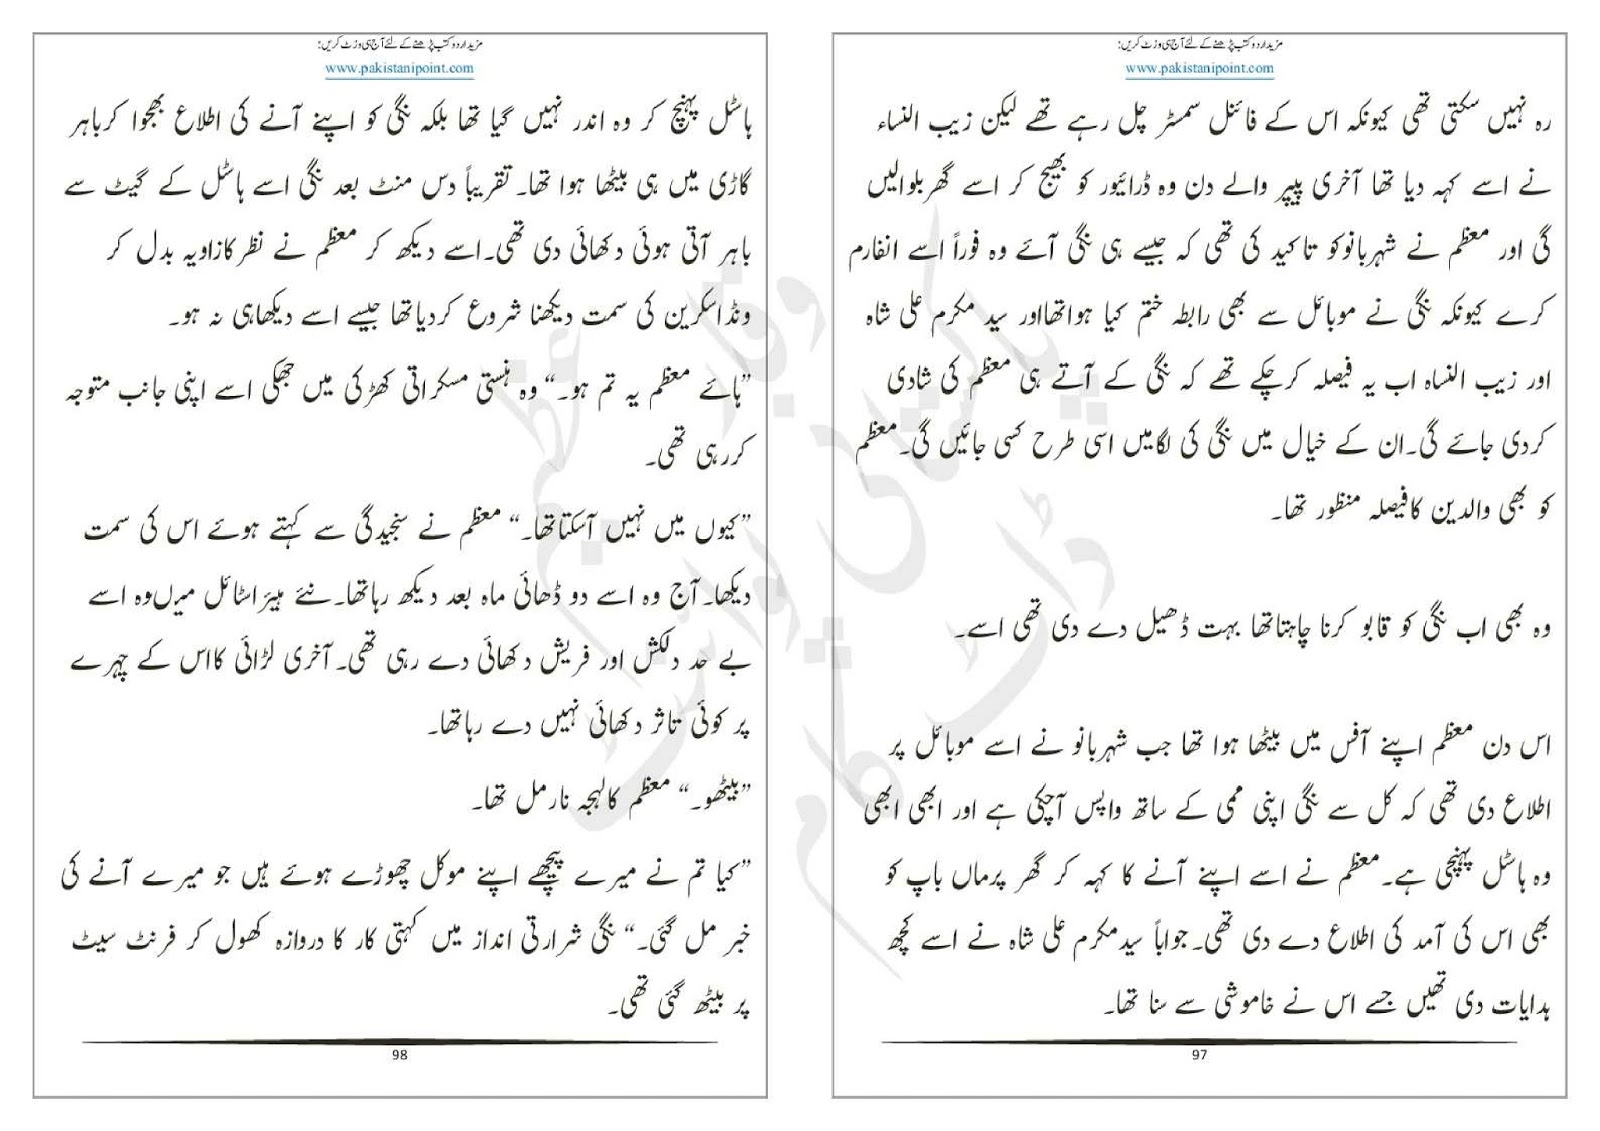 مزید اردو کتب پڑھنے کے لئے آج ہی وزٹ کریں:
www.pakistanipoint.com
رہ نہیں سکتی تھی کیونکہ اس کے فائنل سمسٹر چل رہے تھے لیکن زیب النساء
نے اسے کہہ دیا تھا آخری پیپر والے دن وہ ڈرائیور کو بھیج کر اسے گھر بلوالیں
گی اور معظم نے شہربانو کو تاکید کی تھی کہ جیسے ہی نگی آئے وہ فوراً اسے انفارم
کرے کیونکہ نگی نے موبائل سے بھی رابطہ ختم کیا ہواتھا اور سید مکرم علی شاہ
اور زیب النساہ اب یہ فیصلہ کرچکے تھے کہ نگی کے آتے ہی معظم کی شادی
کردی جائے گی۔ان کے خیال میں نگی کی لگامیں اسی طرح کسی جائیں گی۔معظم
کو بھی والدین کافیصلہ منظور تھا۔
وہ بھی اب نگی کو قابو کرنا چاہتاتھا بہت ڈھیل دے دی تھی اسے۔
اس دن معظم اپنے آفس میں بیٹھا ہوا تھا جب شہربانو نے اسے موبائل پر
اطلاع دی تھی کہ کل سے نگی اپنی ممی کے ساتھ واپس آچکی ہے اور ابھی ابھی
وہ ہاسٹل پہنچی ہے۔معظم نے اسے اپنے آنے کا کہہ کر گھر پرماں باپ کو
بھی اس کی آمد کی اطلاع دے دی تھی۔جواباً سیدمکرم علی شاہ نے اسے کچھ
ہدایات دی تھیں جسے اس نے خاموشی سے سنا تھا۔
97
مزید اردو کتب پڑھنے کے لئے آج ہی وزٹ کریں:
www.pakistanipoint.com
ہاسٹل پہنچ کر وہ اندر نہیں گیا تھا بلکہ نگی کو اپنے آنے کی اطلاع بھجوا کرباہر
گاڑی میں ہی بیٹھا ہوا تھا۔ تقریباً دس منٹ بعد نگی اسے ہاسٹل کے گیٹ سے
باہر آتی ہوئی دکھائی دی تھی۔اسے دیکھ کر معظم نے نظر کازاویہ بدل کر
ونڈاسکرین کی سمت دیکھنا شروع کردیاتھا جیسے اسے دیکھاہی نہ ہو۔
”ہائے معظم یہ تم ہو۔“ وہ ہنستی مسکراتی کھڑکی میں جھکی اسے اپنی جانب متوجہ
کررہی تھی۔
”کیوں میں نہیں آسکتاتھا۔“ معظم نے سنجیدگی سے کہتے ہوئے اس کی سمت
دیکھا۔آج وہ اسے دو ڈھائی ماہ بعد دیکھ رہاتھا۔نئے ہیئراسٹائل میںوہ اسے
بے حد دلکش اور فریش دکھائی دے رہی تھی۔آخری لڑائی کااس کے چہرے
پر کوئی تاثر دکھائی نہیں دے رہاتھا۔
”بیٹھو۔“ معظم کالہجہ نارمل تھا۔
”کیا تم نے میرے پیچھے اپنے موکل چھوڑے ہوئے ہیں جو میرے آنے کی
خبر مل گئی۔“ نگی شرارتی انداز میں کہتی کار کا دروازہ کھول کر فرنٹ سیٹ
پر بیٹھ گئی تھی۔
98